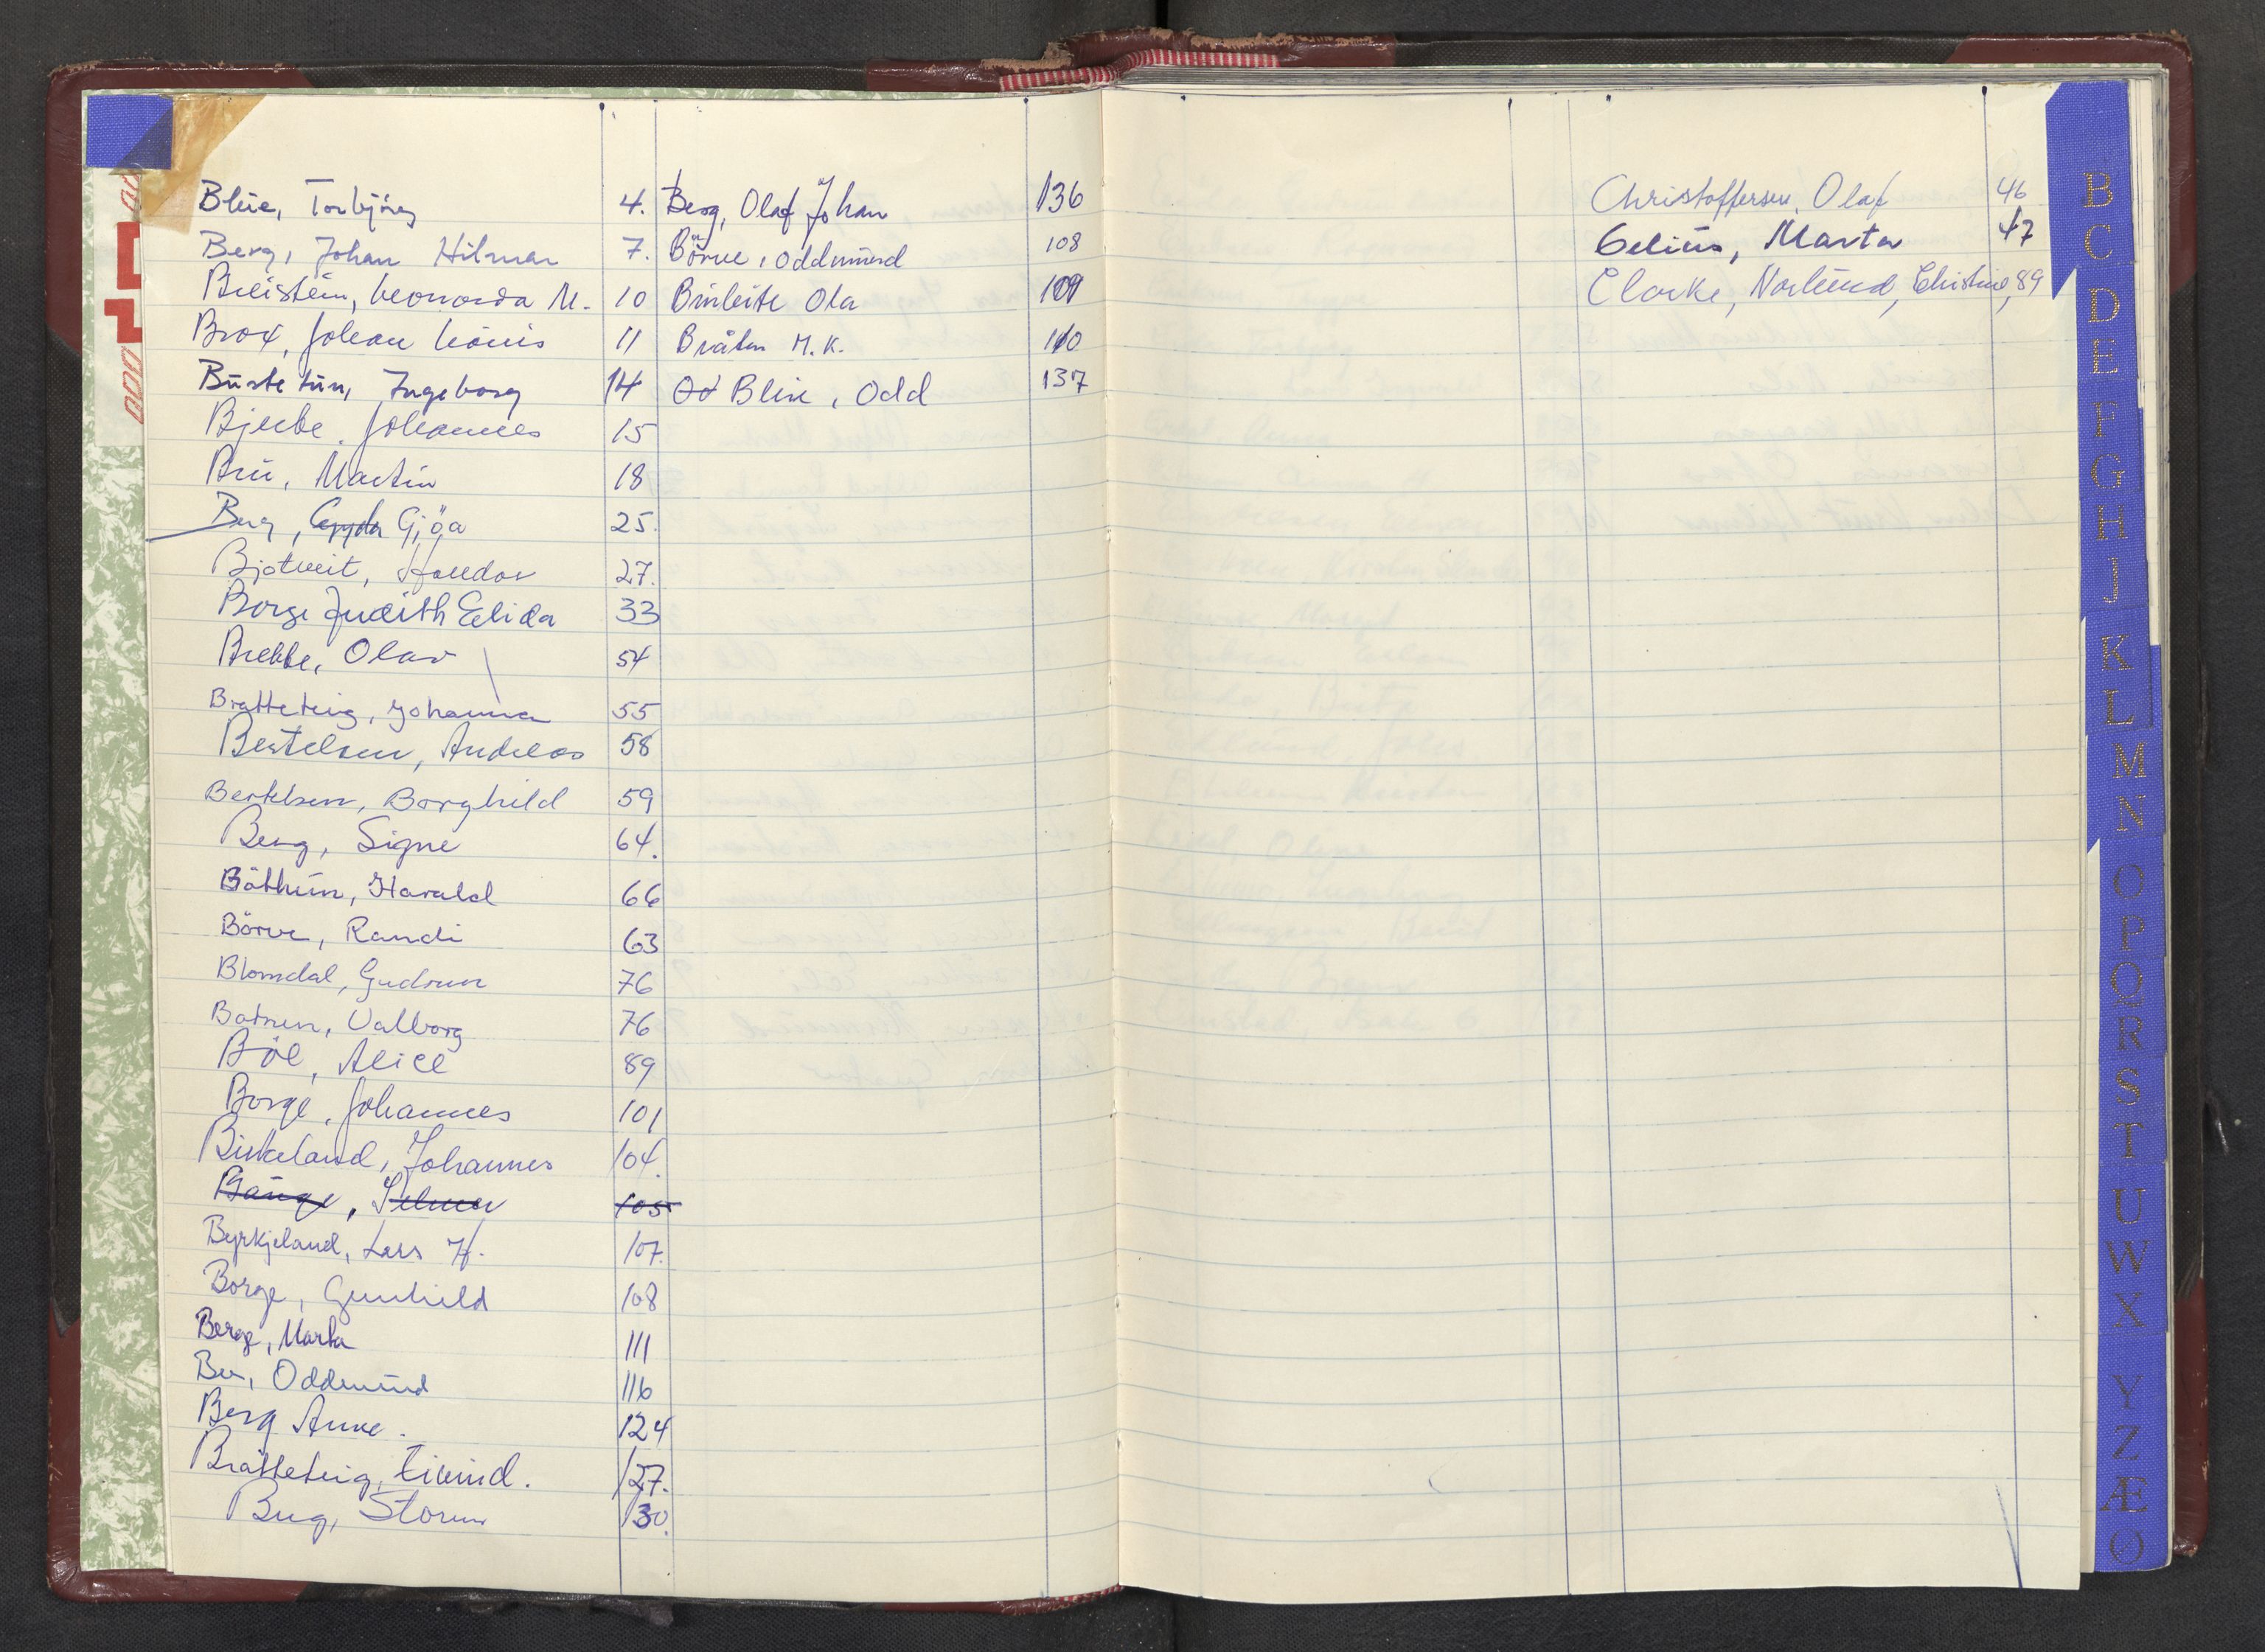 Bleie, Torbjörg 4.
Berg, Johan Hilmar 7.
Breistein, Leonarda M. 10
Brox, Johan Louis 11
Büstetün, Ingeborg 14
Bjerke, Johannes 15
Brü, Martin 18
Berg, Gjöa 25.
Bjotveit, Halldor 27.
Borge Judith Elida 33
Brekke, Olav 54
Bratteteig, Johanna 55
Bertelsen, Andreas 58
Bertelsen, Borghild 59
Berg, Signe 64.
Böthün, Harald 66
Börve, Randi 63
Blomdal, Gudrun 76
Botnen, Valborg 76
Böe, Alice 89
Borge, Johannes 101
Birkeland, Johannes 104.
Bauge, Selmer 105
Byrkjeland, Lars H. 107.
Borge, Gunhild 108
Berge, Marta 111
Bu, Oddmünd 116
Berg Anne. 124
Bråtteteig, Eivind. 127.
Berg, Storm 130.
Berg, Olaf Johan 136
Börve, Oddmünd 108
Ola 109
Bråten M. K. 110
Od Bleie, Odd 137
Christoffersen, Olaf 46
Celius, Marta 47
Clarke, Norlünd, Christine, 89
B
C
D
E
F
G
H
I
J
K
L
M
N
O
P
Q
R
S
T
U
W
X
Y
Z
Æ
Ø